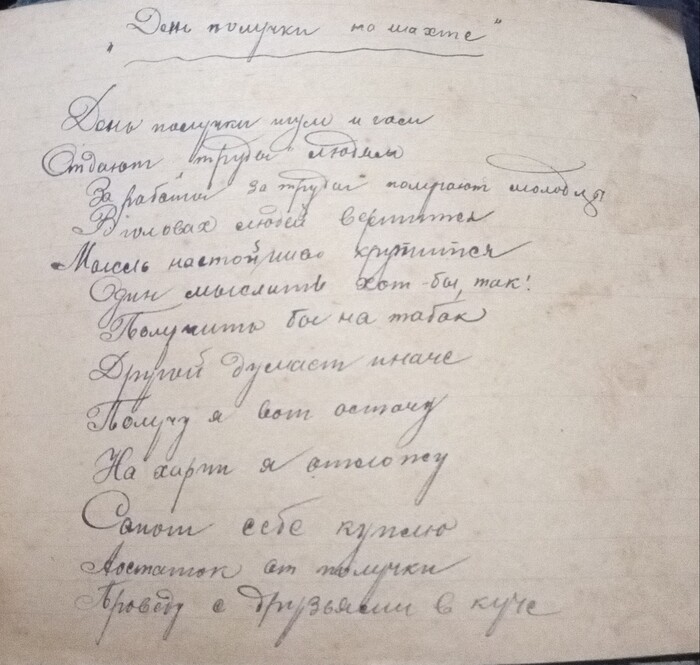 "День получки на шахте"
День получки шум и гам
Отдают труды людям
За работы за труды получают молодцы
В головах людей вертится
Мысль настойчиво крутится
Один мыслить хот-бы, так!
Получить бы на табак
Другой думает иначе
Получу я вот остачу
На харч я отложу
Сапог себе куплю
Астаток от получки
Проведу с друзьями в куче